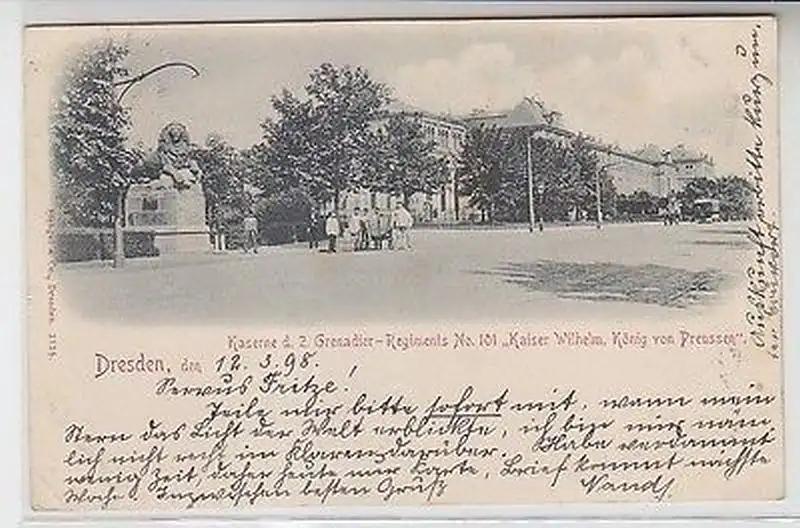 Kaserne d. 2. Grenadier-Regiments No. 101 „Kaiser Wilhelm, König von Preussen".
Dresden, den 12. 3. 98.
Servus Fritze!
Teile mir bitte sofort mit, wann mein
Stern das Licht der Welt erblickte, ich bin mir näm
lich nicht recht im Klaren darüber. Habe verdammt
wenig Zeit, daher heute nur Karte, Brief kommt nächste
Woche. Inzwischen besten Gruß
Auskunft
Dresden. 115